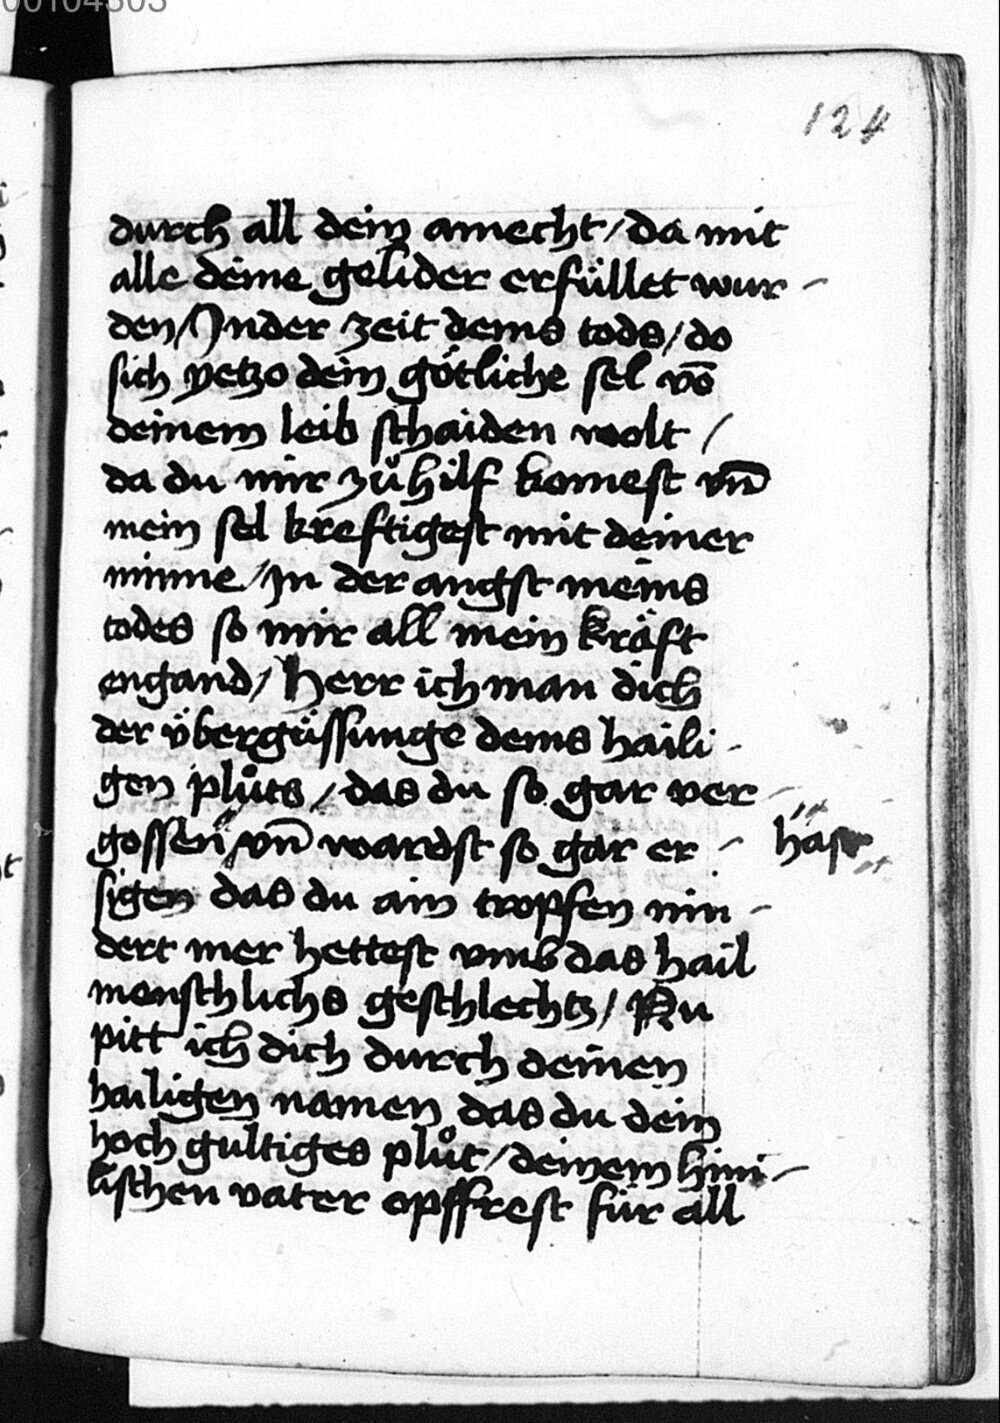 00104303
124
durch all dein amecht / da mit
alle deine gelider erfüllet wur -
den / In der zeit deins tods / do
sich yetzo dein götliche sel vō
deinem leib schaiden wolt /
da du mir zů hilf komest vn̄
mein sel kreftigest mit deiner
minne / in der angst meins
todes so mir all mein kräft
engand / Herr ich man dich
der v̈bergüssunge deins haili -
gen plůts / das du so gar ver -
gossen vn̄ wardst so gar er -
hast
sigen das du ain tropfen nin -
dert mer hettest vmb das hail
menschlichs geschlechtz / Nu
pitt ich dich durch deinen
hailigen namen das du dein
hoch gultiges plůt / deinem himi -
lischen vater opffrest für all